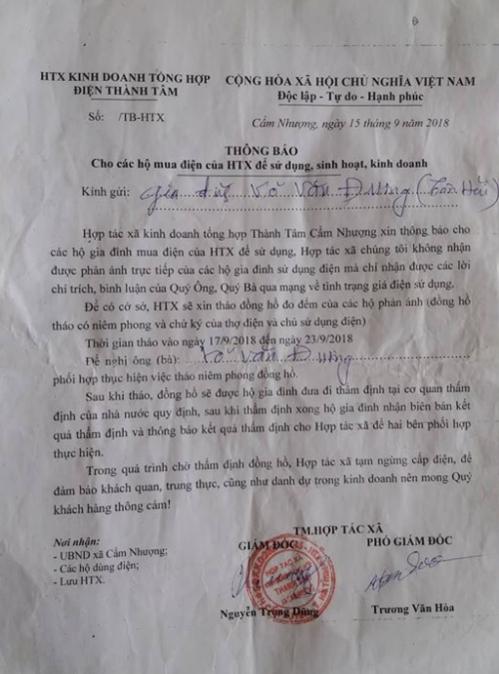 HTX KINH DOANH TỔNG HỢP
ĐIỆN THÀNH TÂM
Số: /TB-HTX
CỘNG HÒA XÃ HỘI CHỦ NGHĨA VIỆT NAM
Độc lập - Tự do - Hạnh phúc
Cẩm Nhượng, ngày 15 tháng 9 năm 2018
THÔNG BÁO
Cho các hộ mua điện của HTX để sử dụng, sinh hoạt, kinh doanh
Kính gửi: Gia đình Võ Văn Đ
Hợp tác xã kinh doanh tổng hợp Thành Tâm Cẩm Nhượng xin thông báo cho
các hộ gia đình mua điện của HTX để sử dụng, Hợp tác xã chúng tôi không nhận
được phản ánh trực tiếp của các hộ gia đình sử dụng điện mà chỉ nhận được các lời
chỉ trích, bình luận của Quý Ông, Quý Bà qua mạng về tình trạng giá điện sử dụng.
Để có cớ sở, HTX sẽ xin tháo đồng hồ đo đếm của các hộ phản ánh (đồng hồ
tháo có niêm phong và chữ ký của thợ điện và chủ sử dụng điện)
Thời gian tháo vào ngày 17/9/2018 đến ngày 23/9/2018
Đề nghị ông (bà): Võ Văn Đ
phối hợp thực hiện việc tháo niêm phong đồng hồ.
Sau khi tháo, đồng hồ sẽ được hộ gia đình đưa đi thẩm định tại cơ quan thẩm
định của nhà nước quy định, sau khi thẩm định xong hộ gia đình nhận biên bản kết
quả thẩm định và thông báo kết quả thẩm định cho Hợp tác xã để hai bên phối hợp
thực hiện.
Trong quá trình chờ thẩm định đồng hồ, Hợp tác xã tạm ngừng cấp điện, để
đảm bảo khách quan, trung thực, cũng như danh dự trong kinh doanh nên mong Quý
khách hàng thông cảm!
Nơi nhận:
- UBND xã Cẩm Nhượng;
- Các hộ dùng điện;
- Lưu HTX.
TM.HỢP TÁC XÃ
GIÁM ĐỐC
PHÓ GIÁM ĐỐC
HỢP TÁC XÃ
Nguyễn Trọng Dũng
Trương Văn Hòa